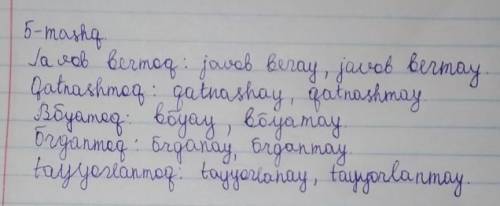 5-mashq
Javob bermoq: javob beray, javob bermay.
Qatnashmoq: qatnashay, qatnashmay
Bo'yamoq: bo'yay, bo'yamay.
O'rganmoq: o'rganay, o'rganmay.
tayyorlanmoq: tayyorlanay, tayyorlanmay.